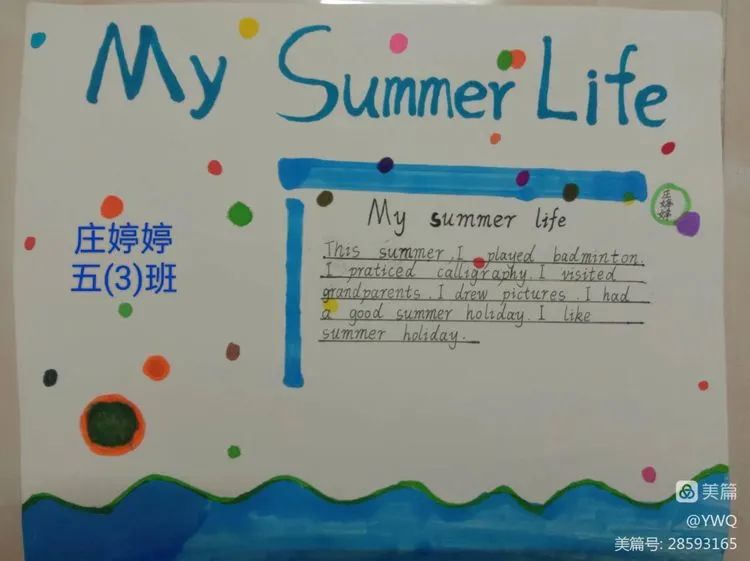 My Summer Life
庄婷婷
My summer life
庄婷婷
五(3)班
This summer, I played badminton.
I praticed calligraphy. I visited
grandparents. I drew pictures. I had
a good summer holiday. I like
summer holiday.
美篇
@YWQ
美篇号: 28593165